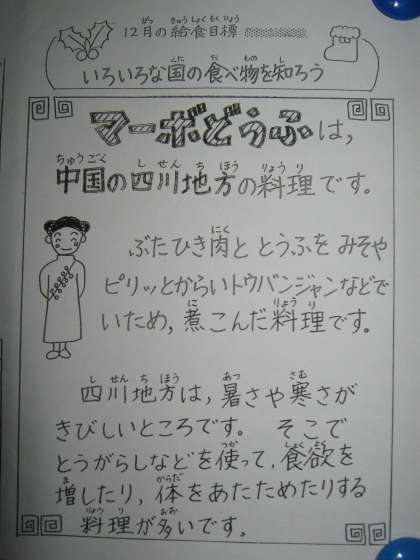 12月の給食目標
いろいろな国の食べ物を知ろう
マーボどうふは,
中国の四川地方の料理です。
ぶたひき肉ととうふをみそや
ピリッとからいトウバンジャンなどで
いため,煮こんだ料理です。
四川地方は,暑さや寒さが
きびしいところです。そこで
とうがらしなどを使って,食欲を
増したり,体をあたためたりする
料理が多いです。